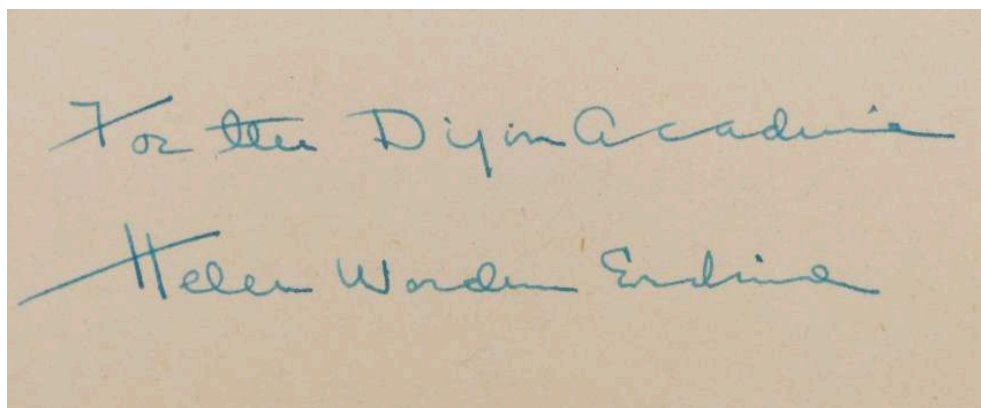 For the Dijon Academie
Helen Worden Erskine